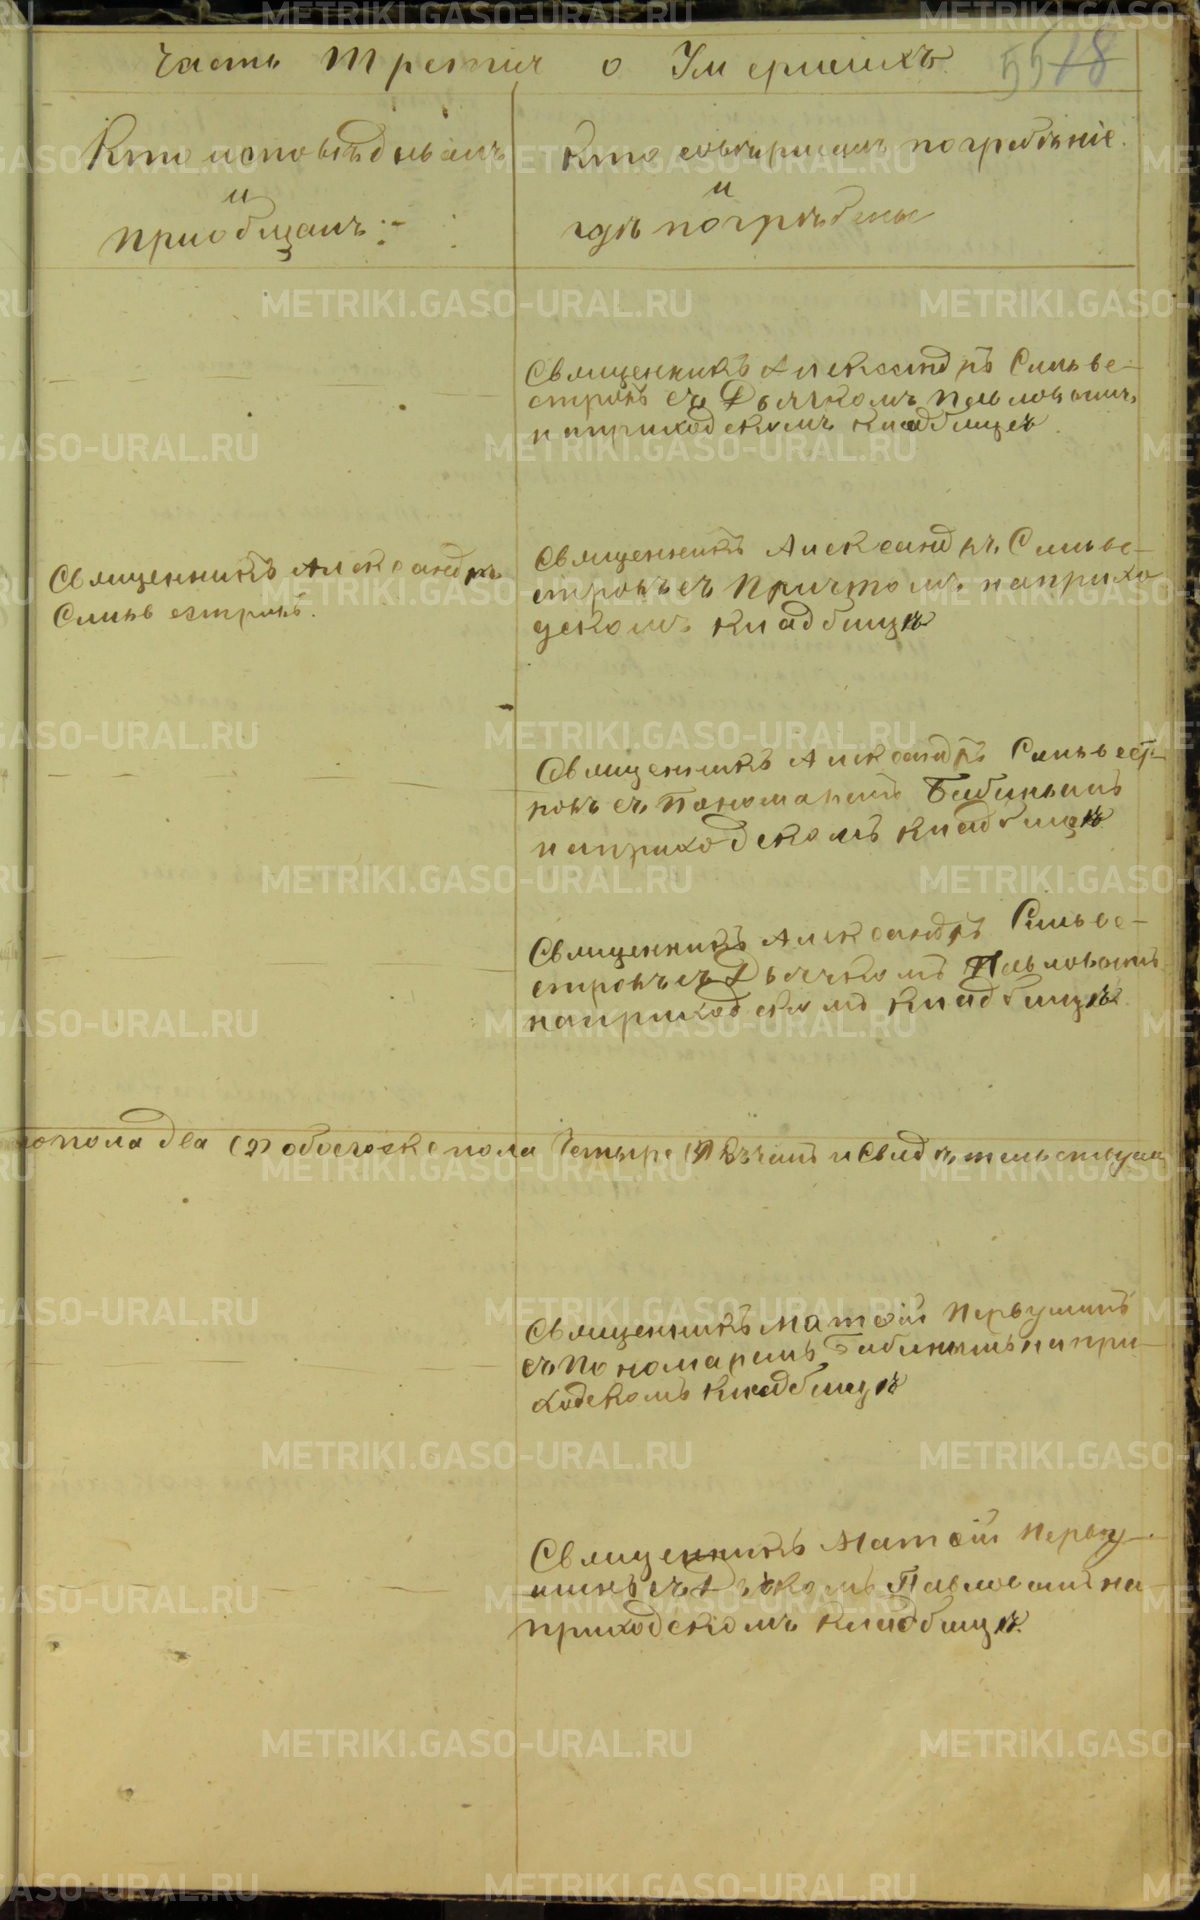 Часть Третія о Умершихъ
Кто исповѣдывалъ
и
пріобщалъ:-
Кто совершалъ погребеніе.
и
гдѣ погребены
Священникъ Александръ Сильве-
стровъ съ Дьячкомъ Павловымъ
наприходскомъ кладбищѣ
Священникъ Александръ
Сильвестровъ.
Священникъ Александръ Сильве-
стровъ съ Причтомъ наприхо
дскомъ кладбищѣ
Священникъ Александръ Сильвест-
ровъ съ Пономаремъ Бабинымъ
наприходскомъ кладбищѣ
Священникъ Александръ Сильве-
стровъ съ Дьячкомъ Павловымъ
наприходскомъ кладбищѣ
пола два (2) обоегоже пола Четыре (4) Въ чемъ и Свидѣтельствуемъ
Священникъ Матѳій Первушинъ
съ Пономаремъ Бабинымъ напри-
ходскомъ кладбищѣ
Священникъ Матѳій Перву-
шинъ съ Дьячкомъ Павловымъ на-
приходскомъ кладбищѣ
METRIKI.GASO-URAL.RU